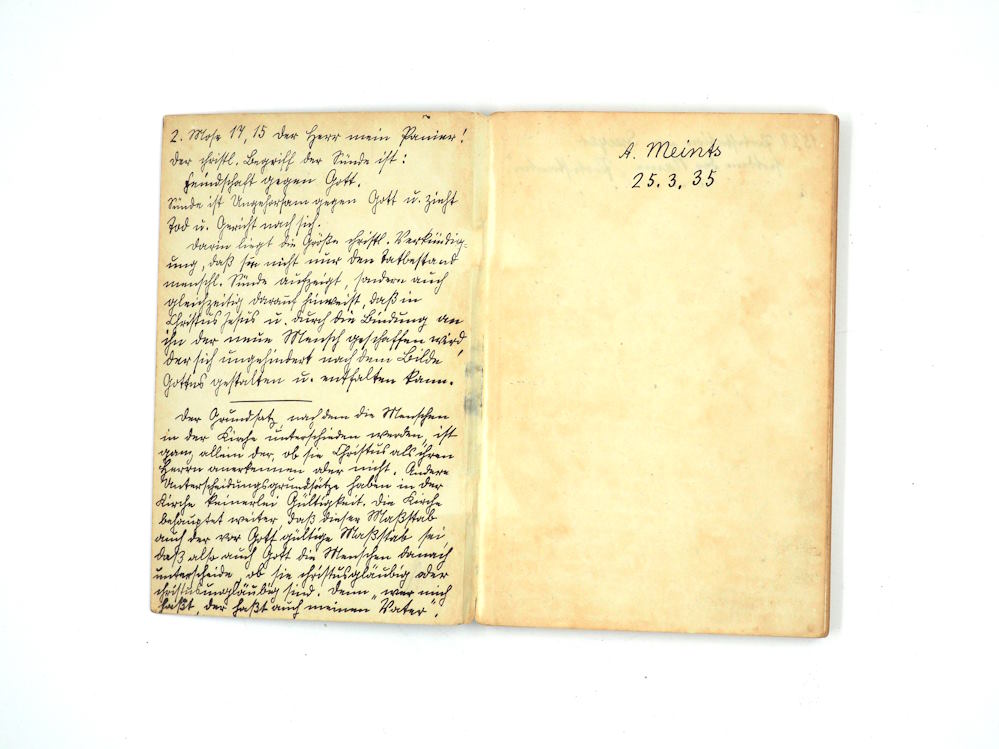 2. Mose 17, 15 Der Herr mein Panier!
Der christl. Begriff der Sünde ist:
Feindschaft gegen Gott.
Sünde ist Ungehorsam gegen Gott u. zieht
Tod u. Gericht nach sich.
Darin liegt die Größe christl. Verkündig-
ung, daß sie nicht nur den Tatbestand
menschl. Sünde aufzeigt, sondern auch
gleichzeitig darauf hinweist, daß in
Christus Jesus u. durch die Bindung an
ihn der neue Mensch geschaffen wird,
der sich ungehindert nach dem Bilde
Gottes gestalten u. entfalten kann.
Der Grundsatz, nach dem die Menschen
in der Kirche unterschieden werden, ist
ganz allein der, ob sie Christus als ihren
Herrn anerkennen oder nicht. Andere
Unterscheidungsgrundsätze haben in der
Kirche keinerlei Gültigkeit. Die Kirche
behauptet weiter, daß dieser Maßstab
auch der vor Gott gültige Maßstab sei,
daß also auch Gott die Menschen danach
unterscheide, ob sie christusgläubig oder
christusungläubig sind. Denn „wer mich
haßt, der haßt auch meinen Vater".
A. Meints
25.3.35